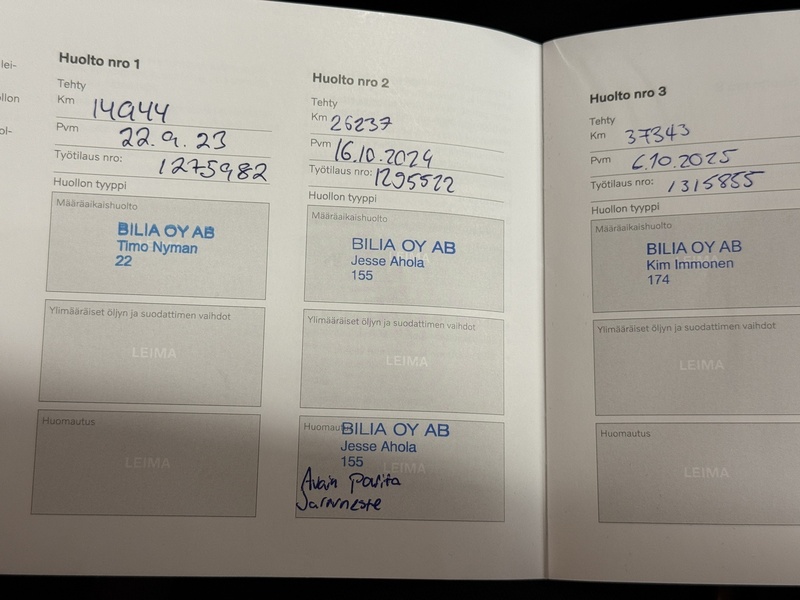 lei-
llon
ol-
Huolto nro 1
Tehty
Km 14944
Pvm 22.9.23
Työtilaus nro: 1275982
Huollon tyyppi
Määräaikaishuolto
BILIA OY AB
Timo Nyman
22
Ylimääräiset öljyn ja suodattimen vaihdot
LEIMA
Huomautus
LEIMA
Huolto nro 2
Tehty
Km 26237
Pvm 16.10.2024
Työtilaus nro: 1295522
Huollon tyyppi
Määräaikaishuolto
BILIA OY AB
Jesse Ahola
155
Ylimääräiset öljyn ja suodattimen vaihdot
LEIMA
Huomautus
BILIA OY AB
Jesse Ahola
155
LEIMA
Avain Parita
Jarruneste
Huolto nro 3
Tehty
Km 37343
Pvm 6.10.2025
Työtilaus nro: 1315855
Huollon tyyppi
Määräaikaishuolto
BILIA OY AB
Kim Immonen
174
Ylimääräiset öljyn ja suodattimen vaihdot
LEIMA
Huomautus
LEIMA